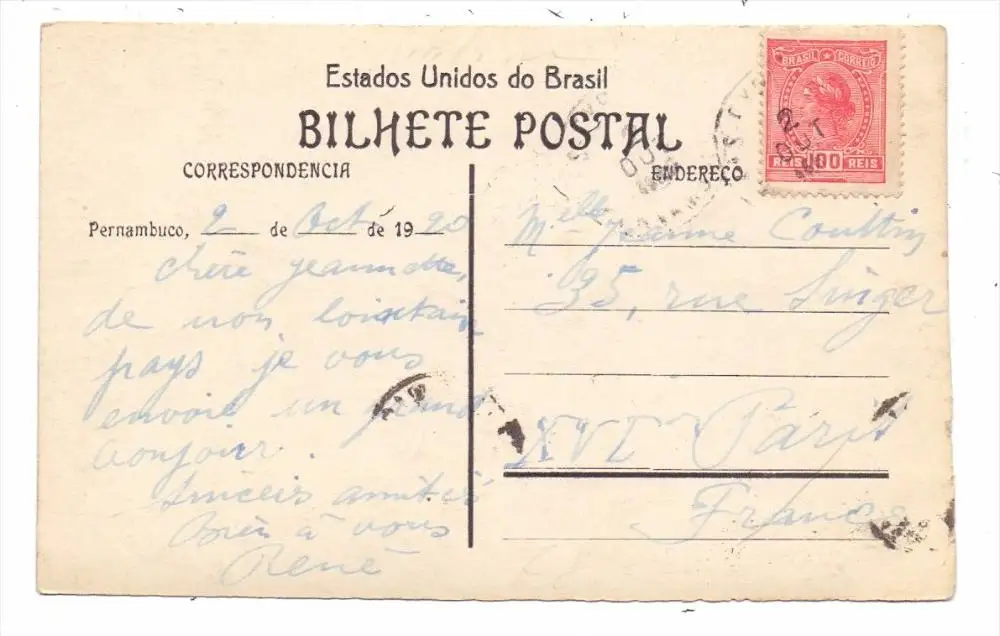 Estados Unidos do Brasil
BILHETE POSTAL
CORRESPONDENCIA
Pernambuco, 2 de Oct de 1920
Chère Jeannette,
de mon lointain
pays je vous
envoie un grand
bonjour.
Sincères amitiés
Bien à vous
René
BRASIL CORREIO
REIS 100 REIS
2
OUT
ENDEREÇO
Melle Jeanne
35, rue Singer
XVI Paris
France